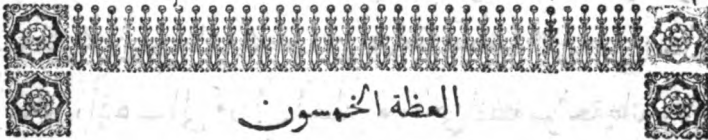 العظة الخمسون